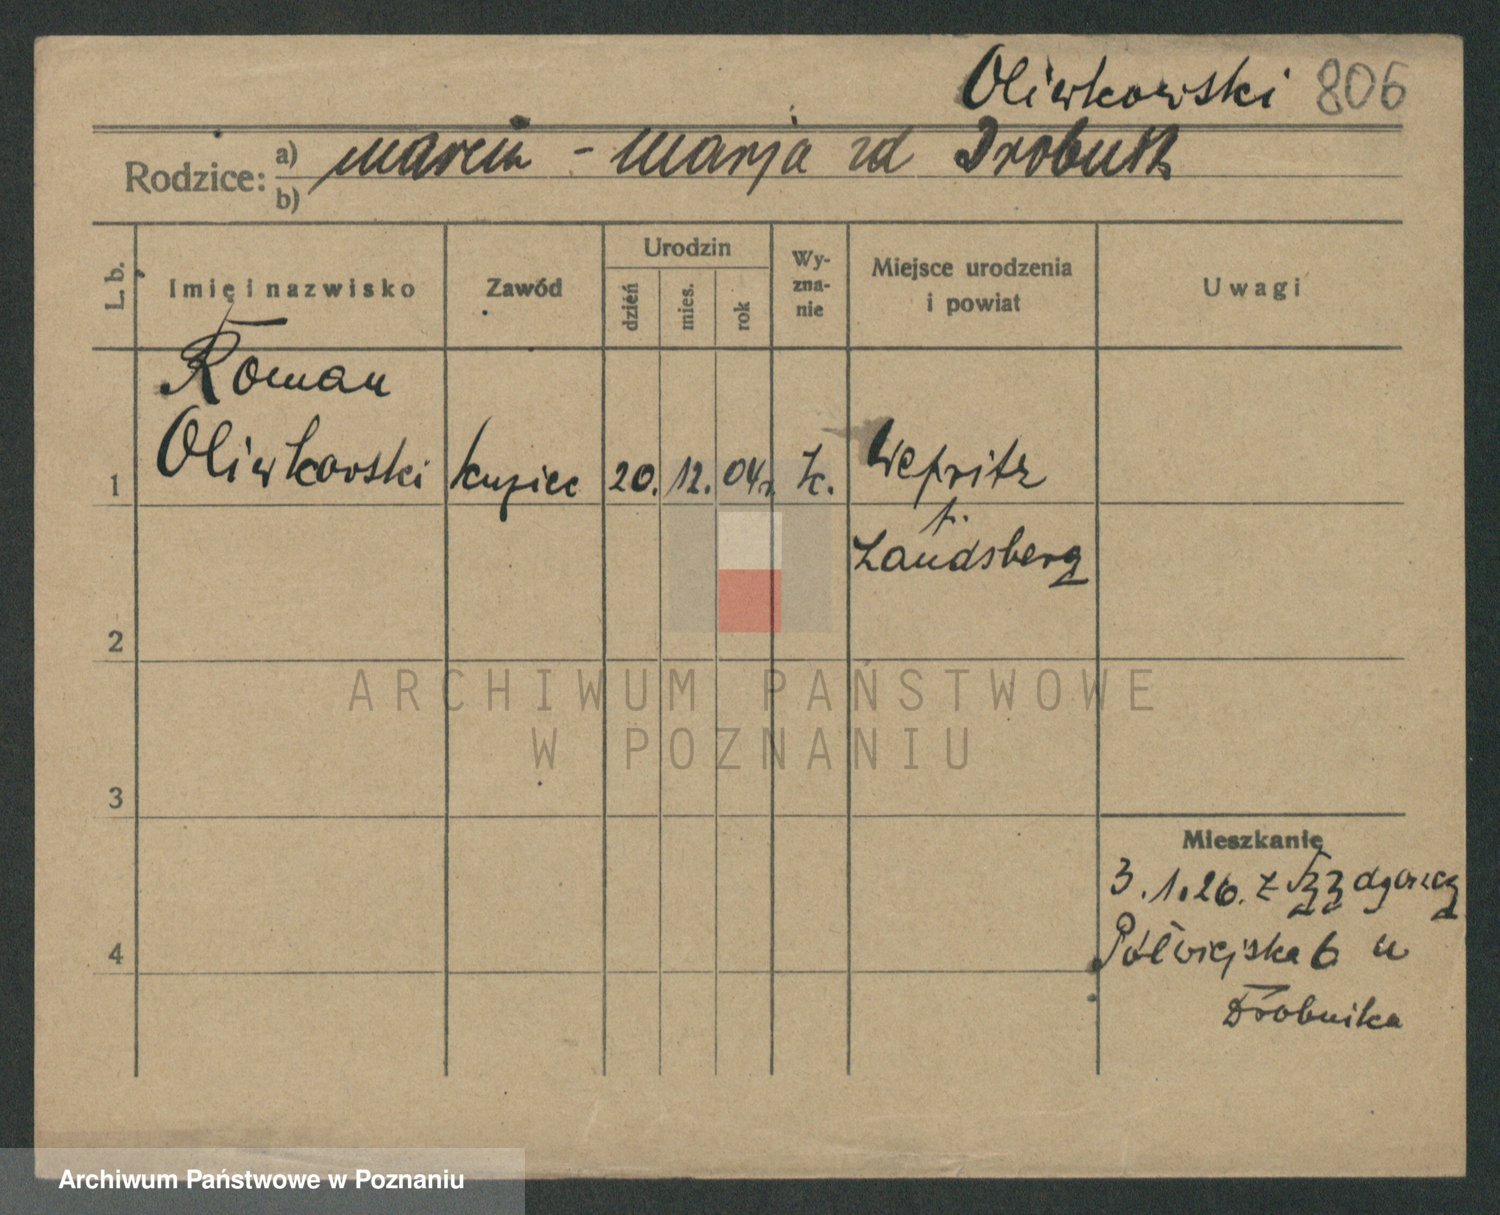 Oliwkowski 806
Rodzice: a) Marcin - Marja zd Drobnik
b)
L. b.
Imię i nazwisko
Zawód
Urodzin
dzień
mies.
rok
Wy-
zna-
nie
Miejsce urodzenia
i powiat
Uwagi
Roman
1 Oliwkowski kupiec 20. 12. 04r. k. Wepritz
p.
Landsberg
2
ARCHIWUM PAŃSTWOWE
W POZNANIU
3
Mieszkanie
3.1.26. z
4 Półwiejska 6 u
Drobnika
Archiwum Państwowe w Poznaniu